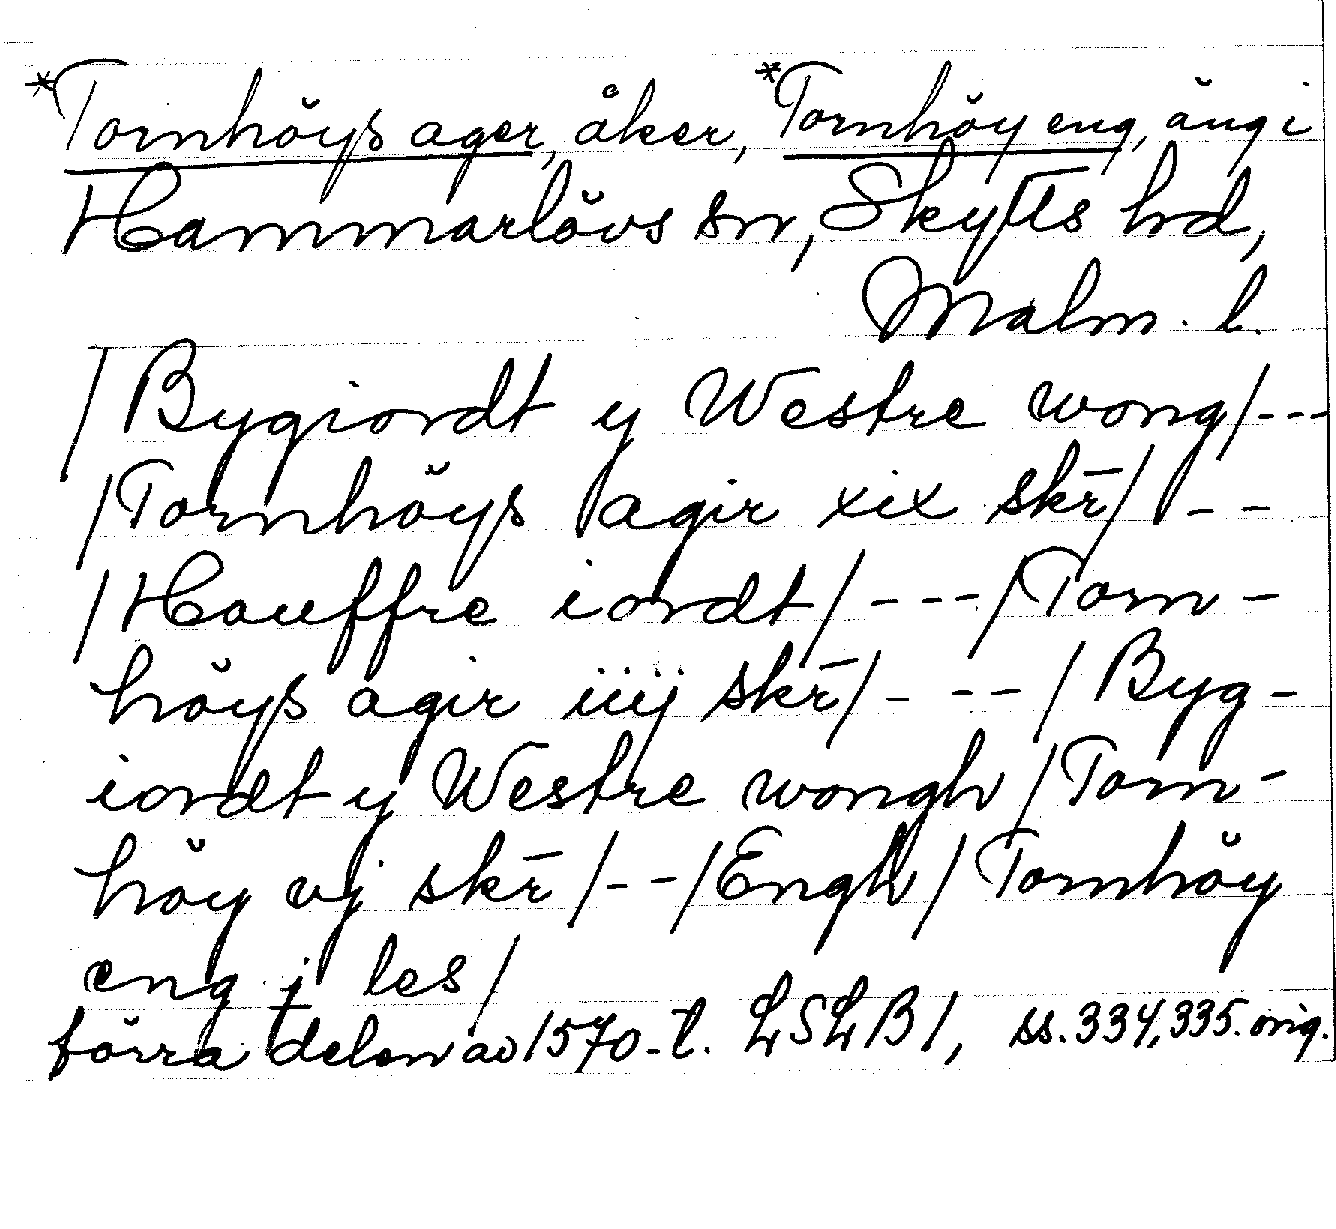 *Tornhöys ager, åker, *Tornhöy eng, äng i
Hammarlövs sn, Skytts hd,
Malm. l.
/Bygiordt y Westre wong/---
/Tornhöys agir xix skr̄/ - -
/Houffre iordt/---/Torn-
höys agir iiij skr̄/- --/Byg-
iordt y Westre wongh/Torn-
höy vj skr̄/--/Engh/Tornhöy
eng j les/
förra delen av 1570-t. LSLB1, ss. 334, 335. orig.